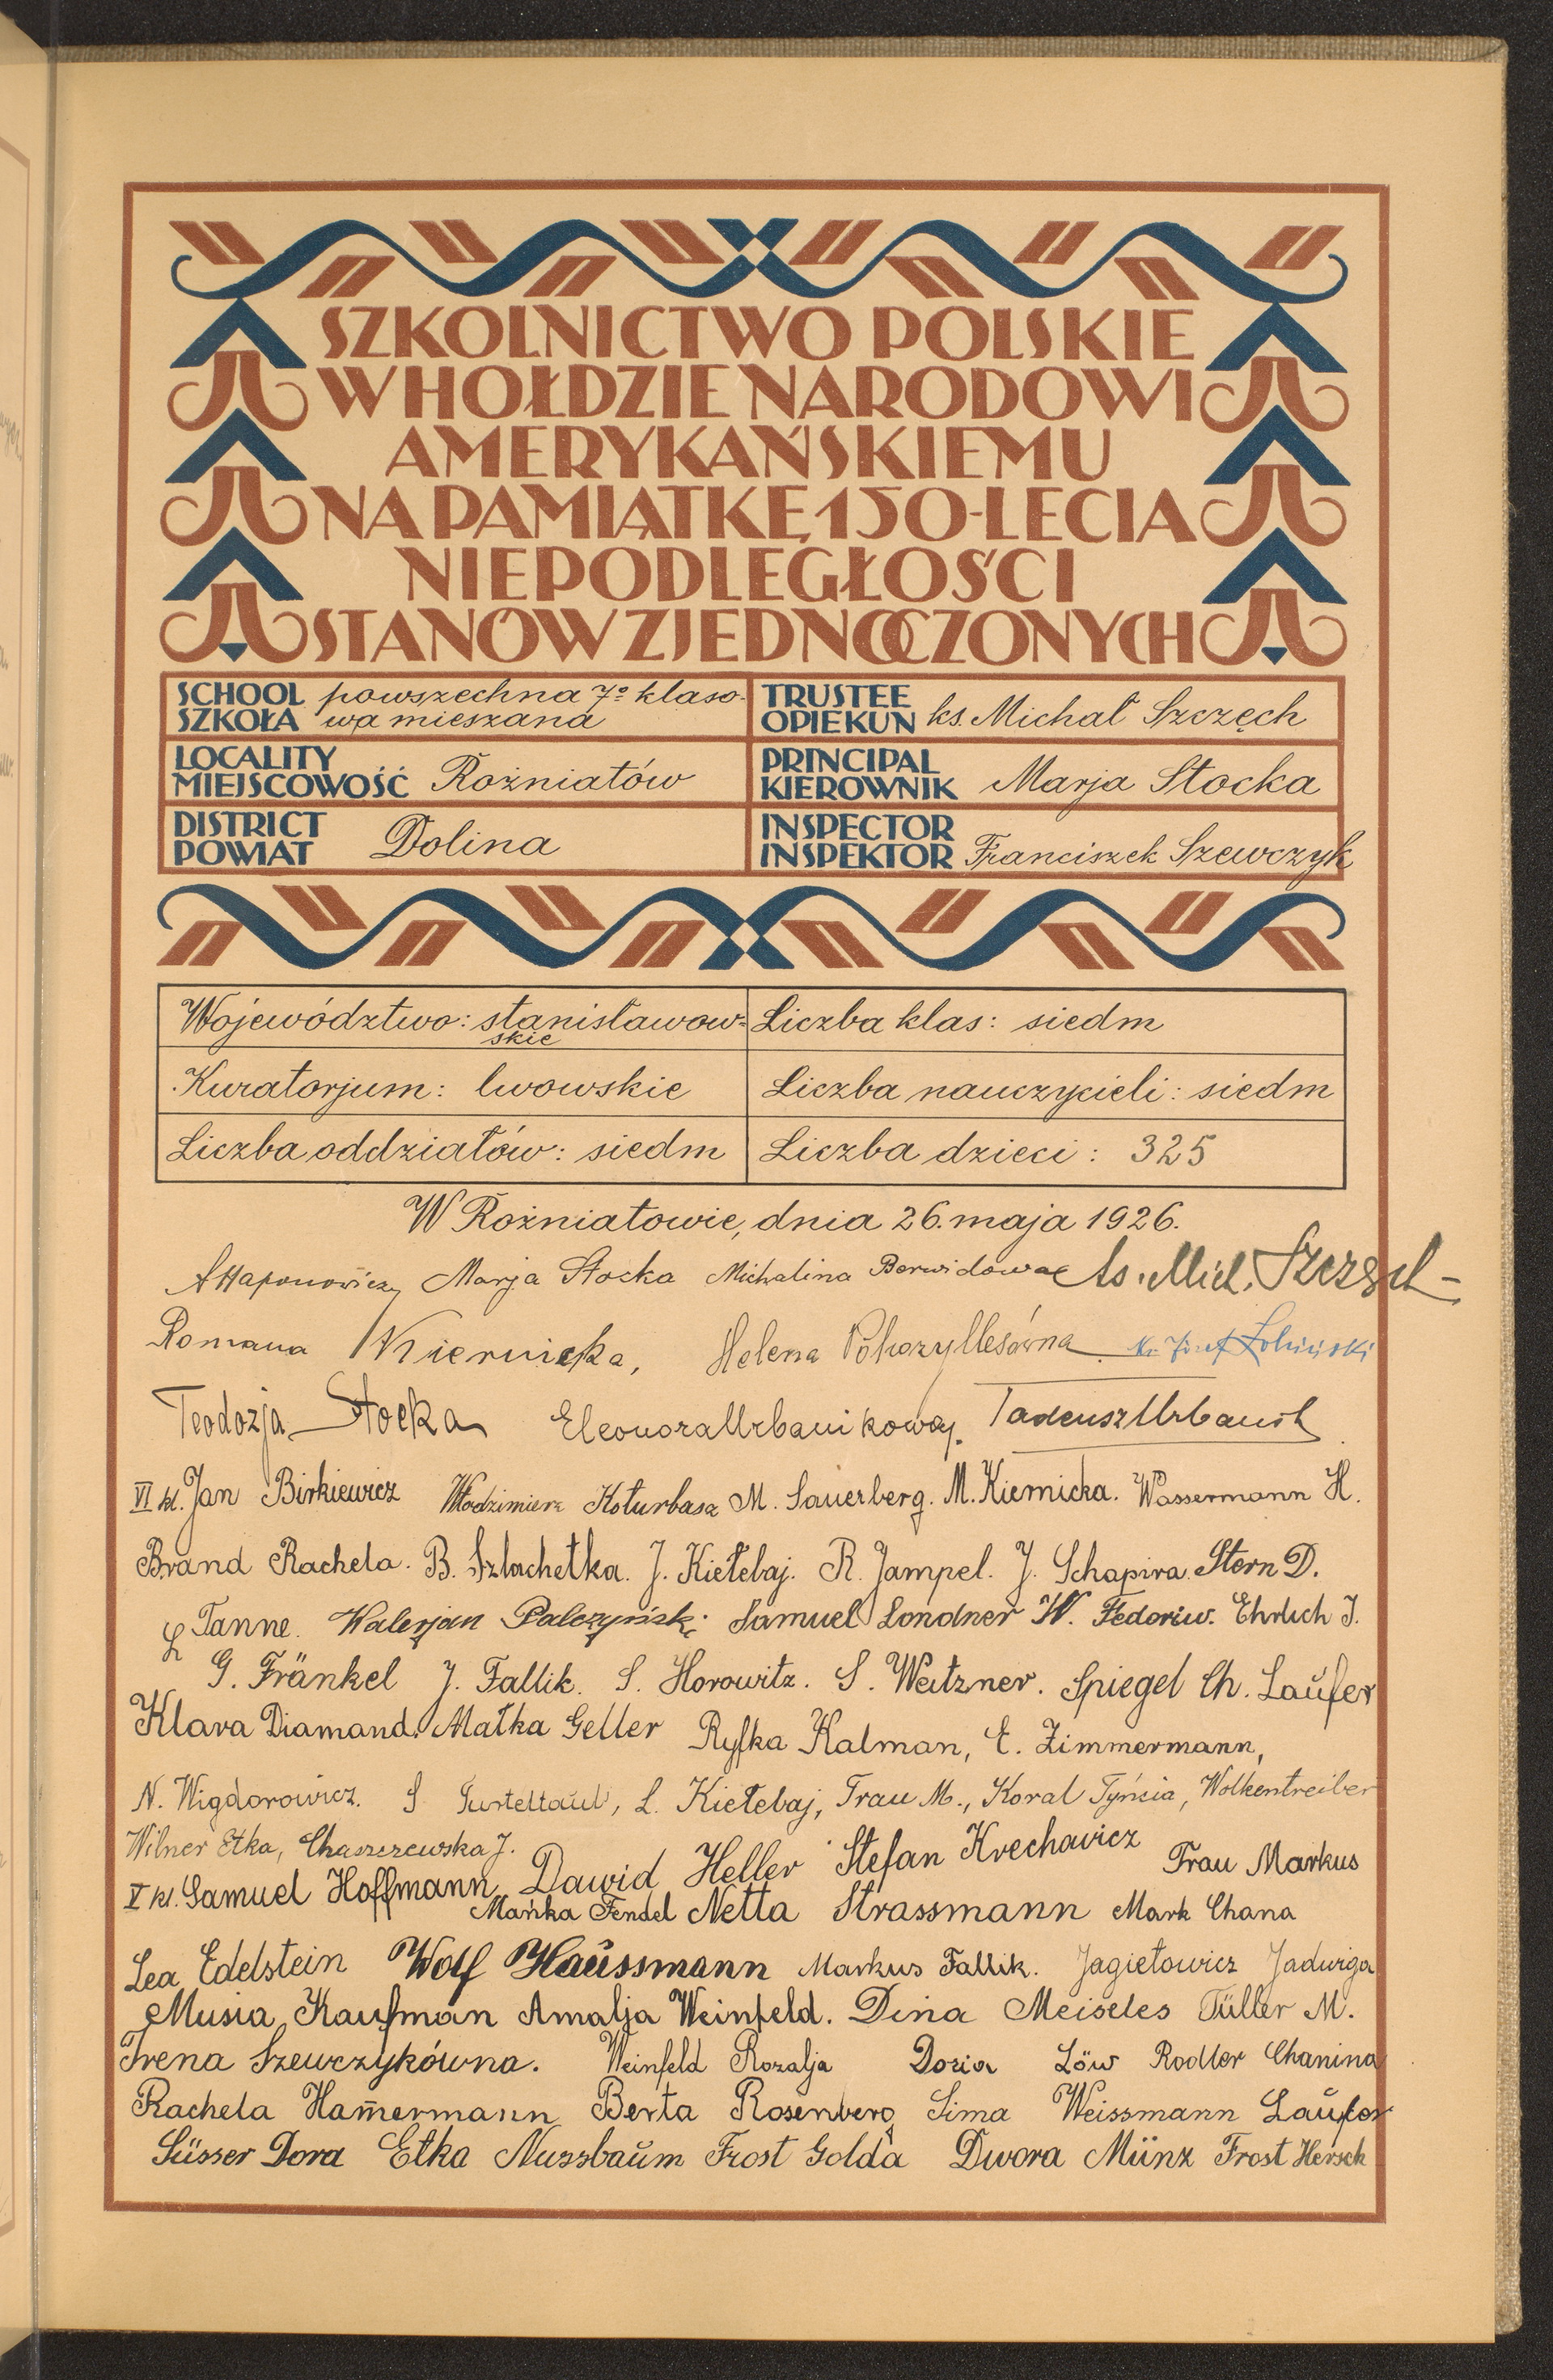 SZKOLNICTWO POLSKIE
W HOŁDZIE NARODOWI
AMERYKAŃSKIEMU
NA PAMIĄTKĘ 150-LECIA
NIEPODLEGŁOŚCI
STANÓW ZJEDNOCZONYCH
SCHOOL SZKOŁA powszechna 7º klaso-
wa mieszana
TRUSTEE OPIEKUN ks. Michał Szczęch
LOCALITY MIEJSCOWOŚĆ Rożniatów
PRINCIPAL KIEROWNIK Marja Stocka
DISTRICT POWIAT Dolina
INSPECTOR INSPEKTOR Franciszek Szewczyk
Województwo: stanisławow=
skie
Liczba klas: siedm
Kuratorjum: lwowskie
Liczba nauczycieli: siedm
Liczba oddziałów: siedm
Liczba dzieci: 325
W Rożniatowie, dnia 26. maja 1926.
Marja Stocka Michalina Berwidowa ks. Mich. Szczęch
Romana Kiernicka, Helena
Teodozja Stocka Eleonora Urbanikowa. Tadeusz Urbanik
VI kl. Jan Birkiewicz Włodzimierz Koturbasz M. Sauerberg. M. Kiernicka. Wassermann H.
Brand Rachela. B. Szlachetka. J. Kiełebaj. R. Jampel. J. Schapira. Stern D.
L Tanne. Walerjan Palczyński. Samuel Londner W. Fedoriw. Ehrlich J.
G. Fränkel J. Fallik. S. Horowitz. S. Weitzner. Spiegel Ch. Laŭfer
Klara Diamand. Małka Geller Ryfka Kalman, E. Zimmermann,
N. Wigdorowicz. S L. Kiełebaj, Frau M., Koral Tyńcia, Wolkentreiber
Wilner Etka, Chaszczewska J.
V kl. Samuel Hoffmann Dawid Heller Stefan Krechowicz Frau Markus
Mańka Fendel Netta Strassmann Mark Chana
Lea Edelstein Wolf Haŭssmann Markus Fallik. Jagiełowicz Jadwiga
Musia Kaufman Amalja Weinfeld. Dina Meiseles Füller M.
Irena Szewczykówna. Weinfeld Rozalja Dozia Löw Rodler Chanina
Rachela Ham̄ermann Berta Rosenberg Sima Weissmann Laŭfer
Süsser Dora Etka Nussbaŭm Frost Golda Dwora Münz Frost Hersch